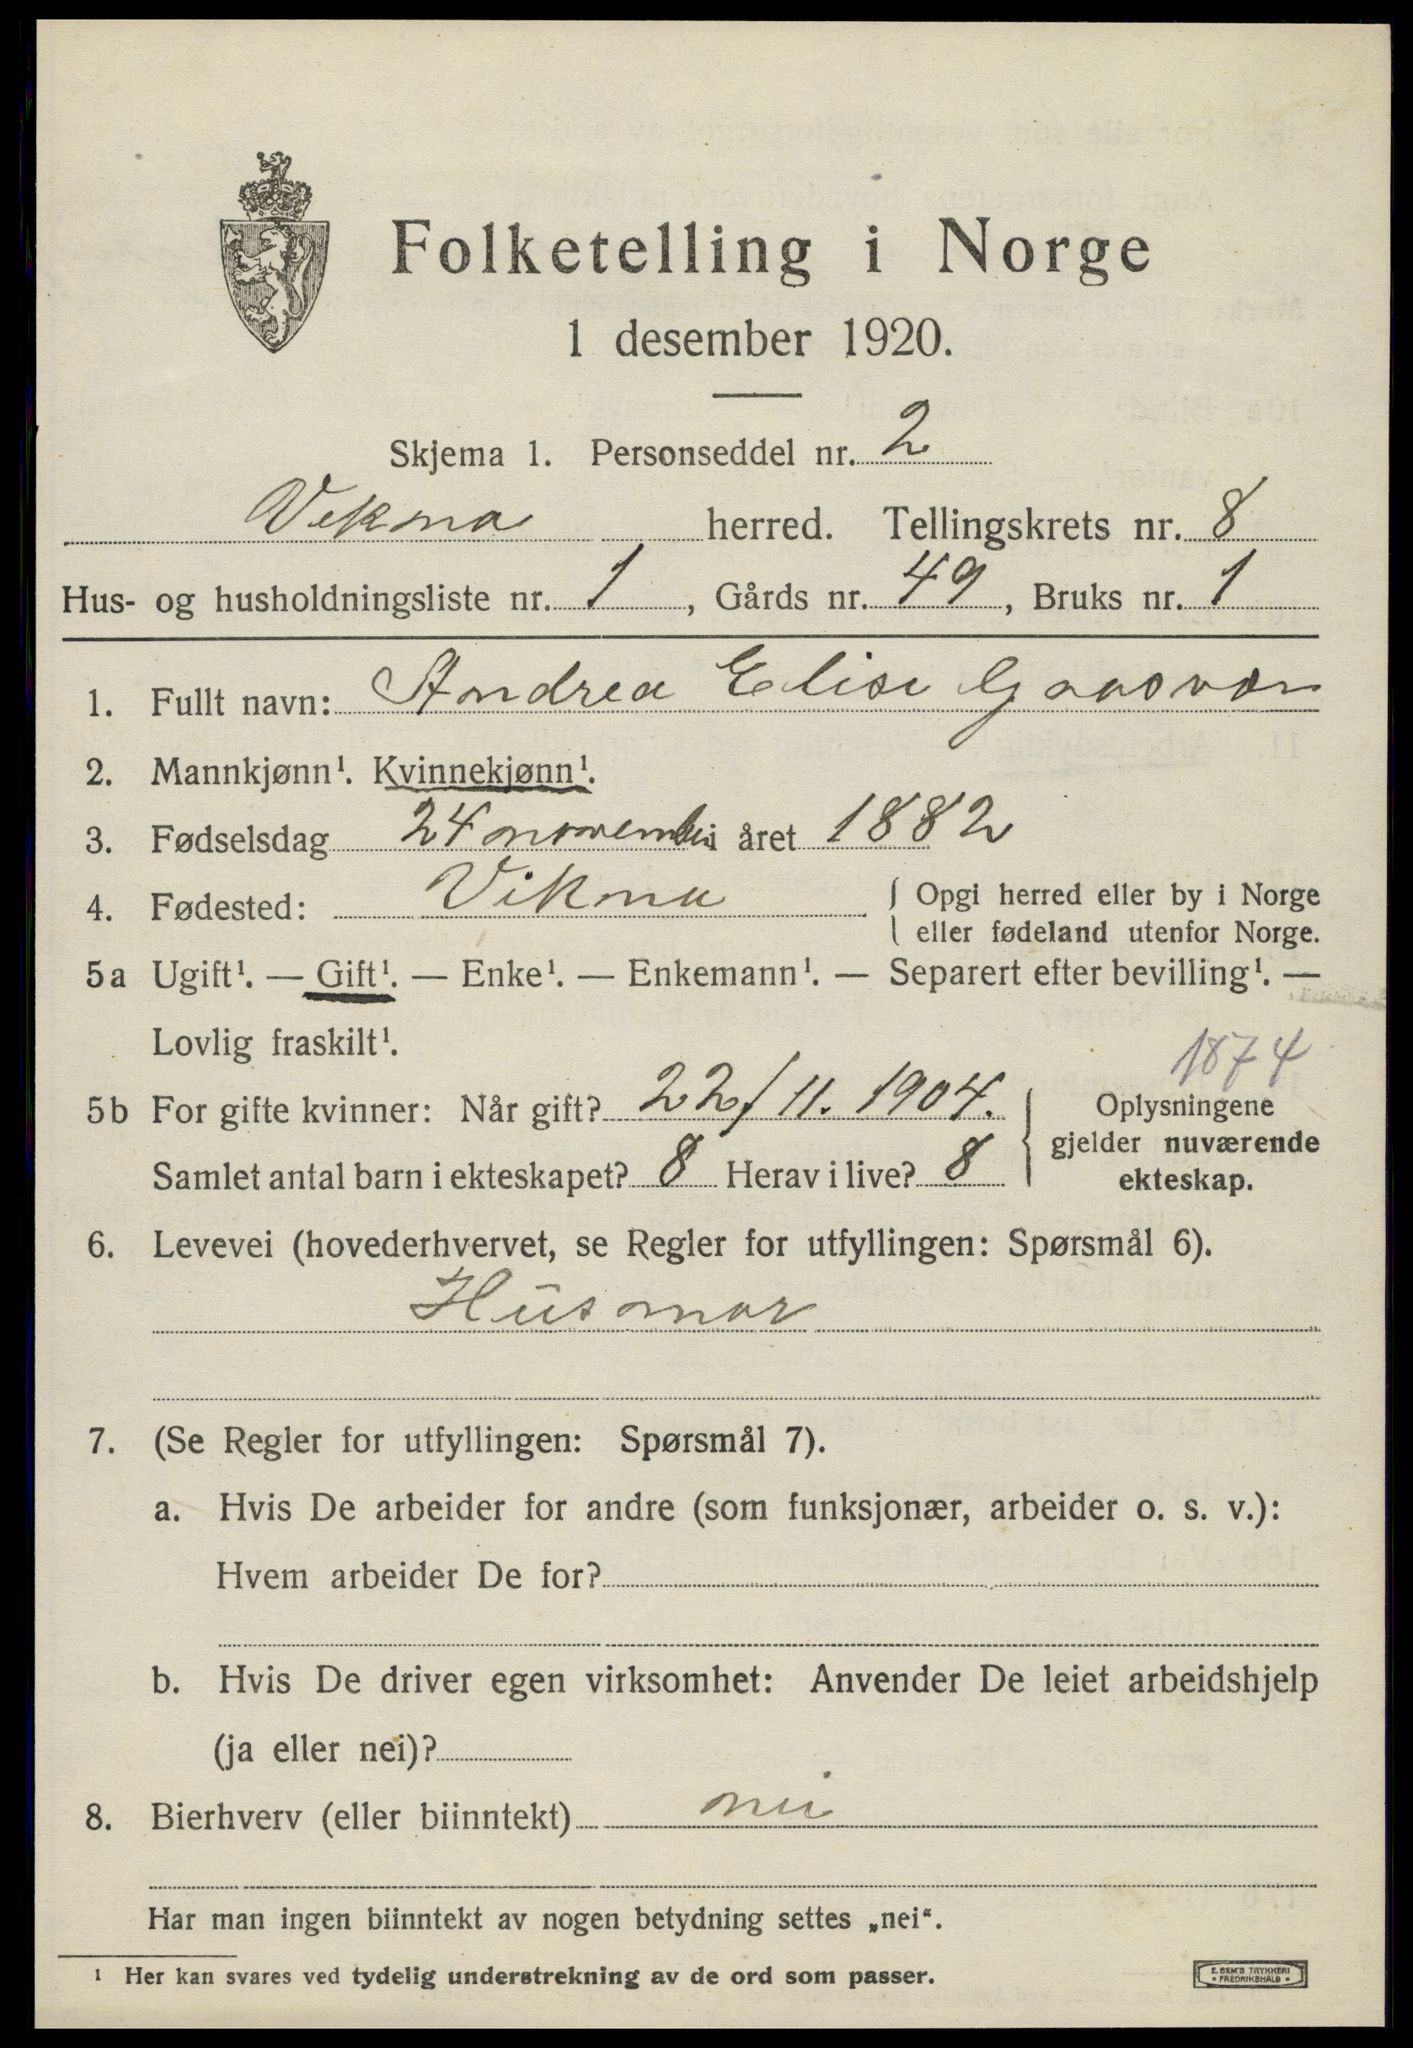 Folketelling i Norge
1 desember 1920.
Skjema 1. Personseddel nr. 2
Vikna herred. Tellingskrets nr. 8
Hus- og husholdningsliste nr. 1, Gårds nr. 49, Bruks nr. 1
1. Fullt navn: Andrea Elise Gaasvær
2. Mannkjønn¹. Kvinnekjønn¹.
3. Fødselsdag 24 november i året 1882
4. Fødested: Vikna { Opgi herred eller by i Norge
eller fødeland utenfor Norge.
5a Ugift¹. — Gift¹. — Enke¹. — Enkemann¹. — Separert efter bevilling¹. —
Lovlig fraskilt¹.
1874
5b For gifte kvinner: Når gift? 22/11. 1904. { Oplysningene
gjelder nuværende
Samlet antal barn i ekteskapet? 8 Herav i live? 8 ekteskap.
6. Levevei (hovederhvervet, se Regler for utfyllingen: Spørsmål 6).
Husmor
7. (Se Regler for utfyllingen: Spørsmål 7).
a. Hvis De arbeider for andre (som funksjonær, arbeider o. s. v.):
Hvem arbeider De for?
b. Hvis De driver egen virksomhet: Anvender De leiet arbeidshjelp
(ja eller nei)?
8. Bierhverv (eller biinntekt) nei
Har man ingen biinntekt av nogen betydning settes „nei“.
¹ Her kan svares ved tydelig understrekning av de ord som passer.
E. SEM'S TRYKKERI
FREDRIKSHALD